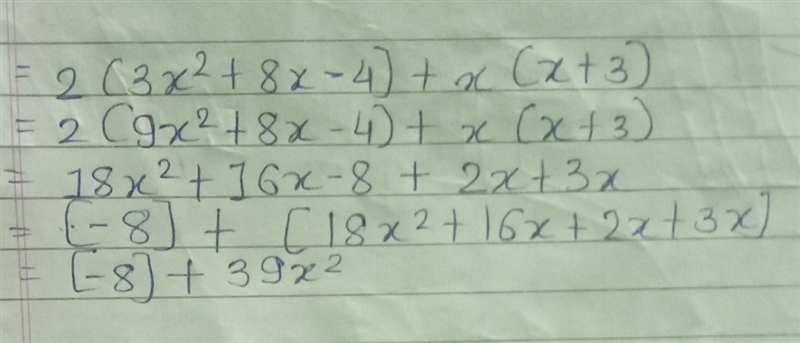 = 2 (3x² + 8x - 4) + x (x + 3)
= 2 (9x² + 8x - 4) + x (x + 3)
= 18x² + 16x - 8 + 2x + 3x
= [- 8] + [18x² + 16x + 2x + 3x]
= [-8] + 39x²